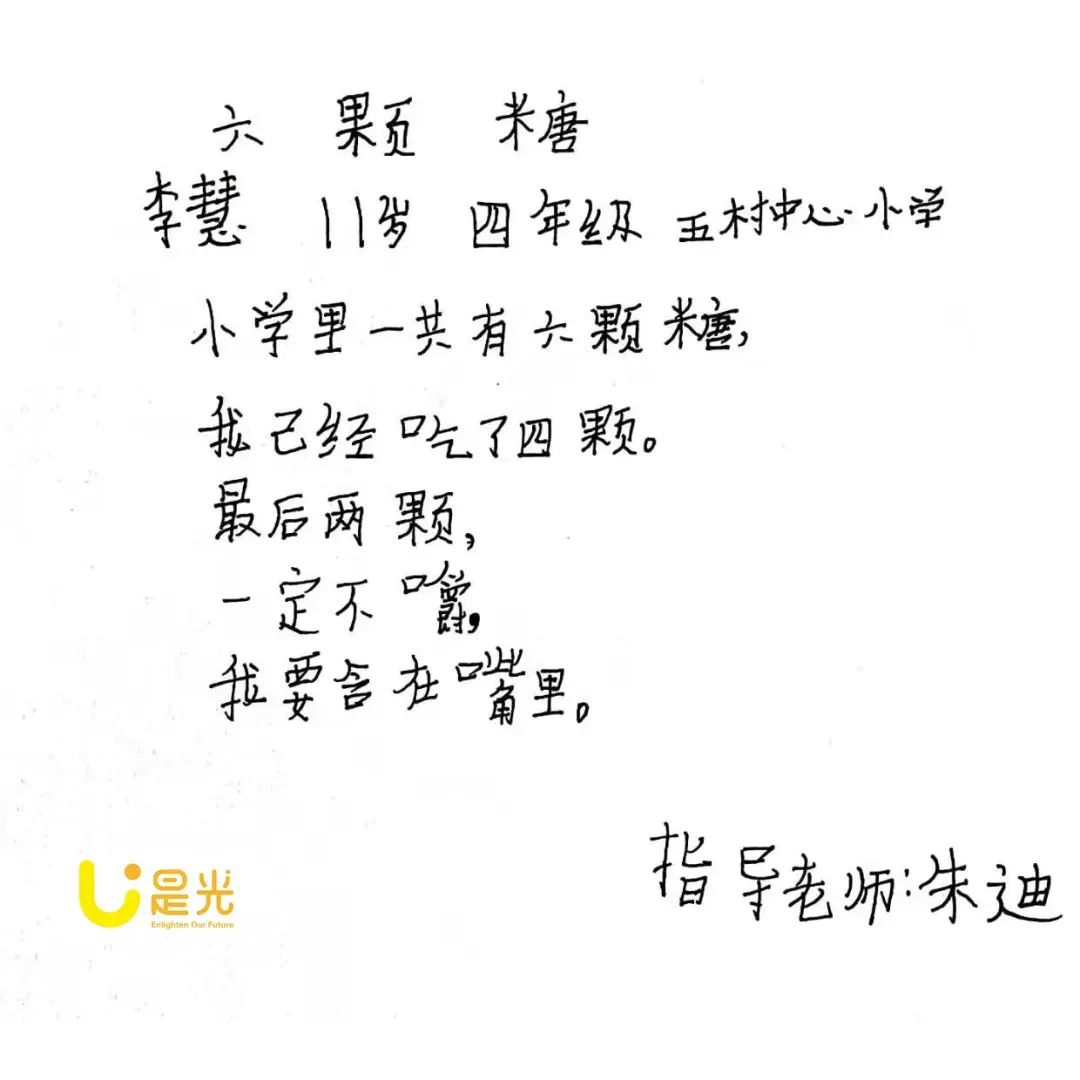 六 颗 糖
李慧 11岁 四年级 五村中心小学
小学里一共有六颗糖,
我已经吃了四颗。
最后两颗,
一定不嚼,
我要含在嘴里。
指导老师:朱迪
是光
Enlighten Our Future